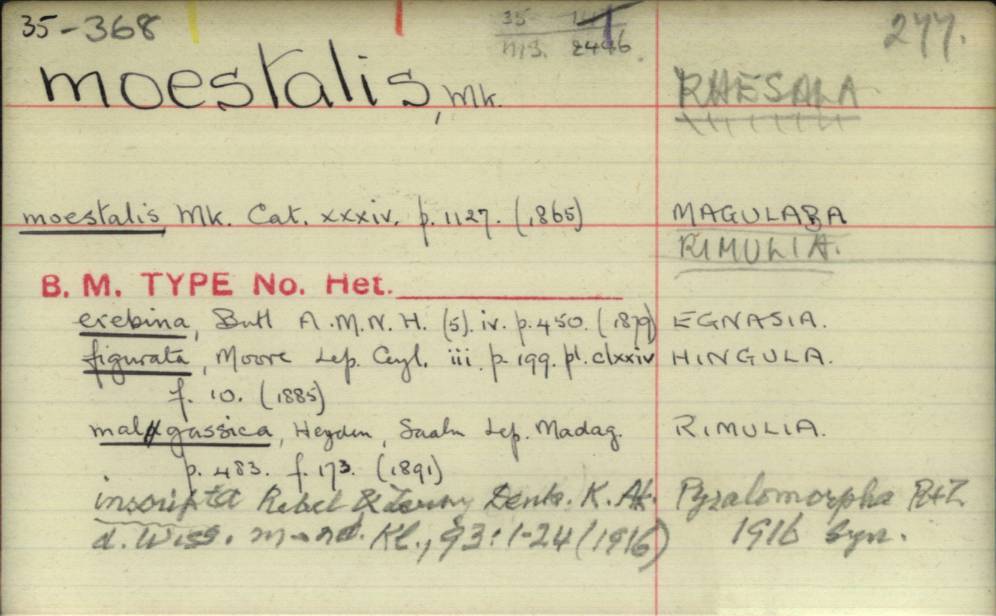 35-368
35
n/s. 2446.
277.
moestalis, Mk. RHESALA
moestalis Mk. Cat. xxxiv. p. 1127. (1865) MAGULABA
RIMULIA.
B. M. TYPE No. Het.
erebina, Butl A.M.N.H. (5). iv. p. 450. (1879) EGNASIA.
figurata, Moore Lep. Ceyl. iii. p. 199. pl. clxxiv HINGULA.
f. 10. (1885)
malgassica, Heyden, Saalm Lep. Madag. RIMULIA.
p. 483. f. 173. (1891)
inscripta Rebel & Zerny Denks. K. Ak. Pyralomorpha R+Z
d. Wiss. m-nat. Kl., 93: 1-24 (1916) 1916 Syn.